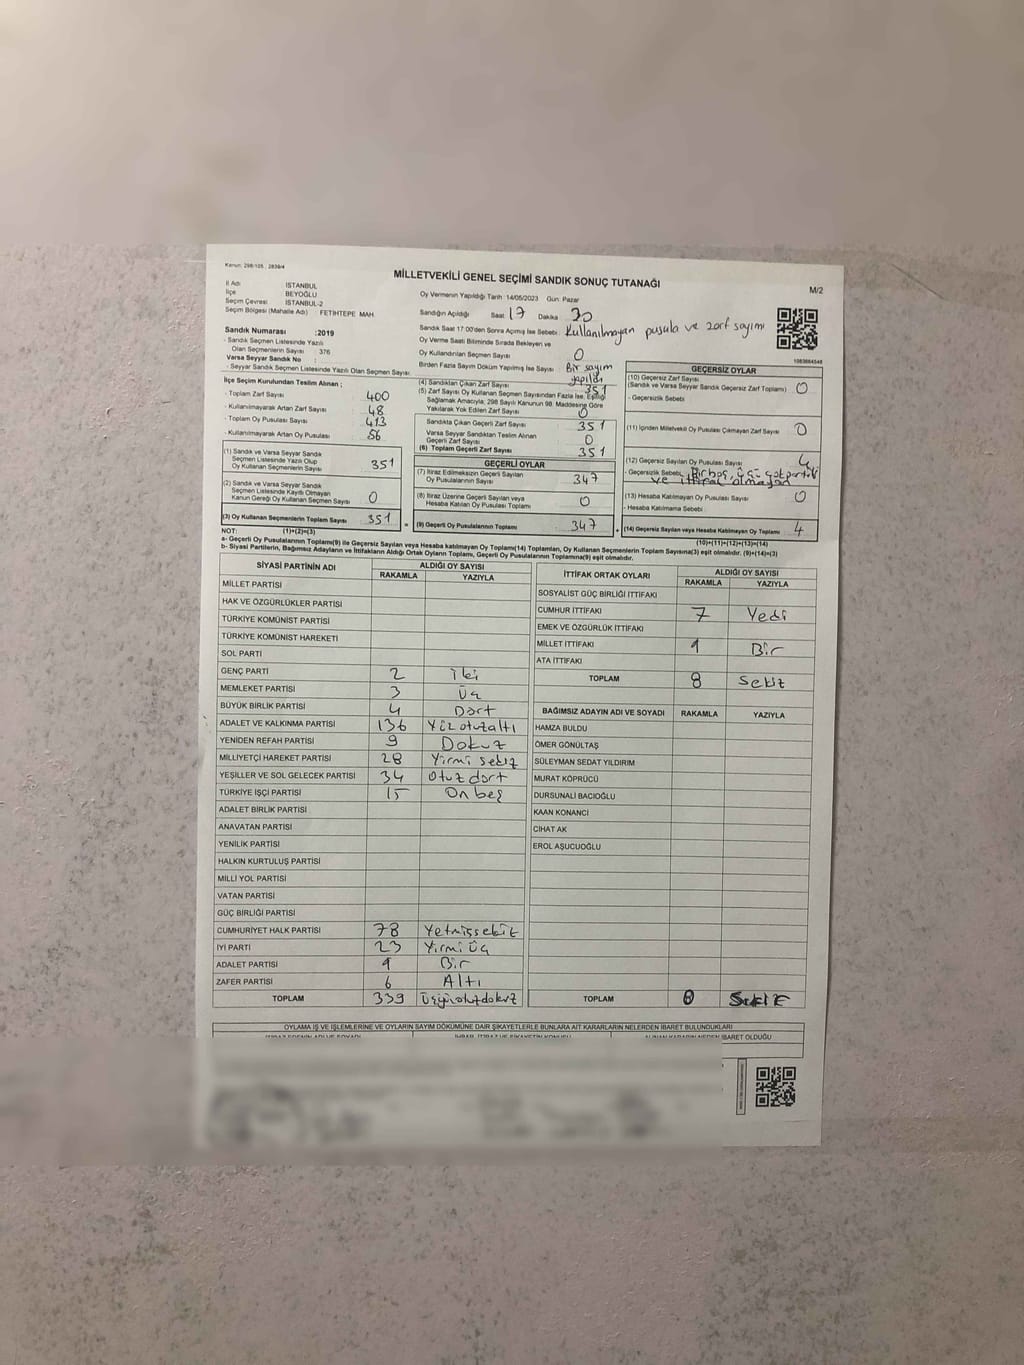 Kanun: 298/105, 2839/4
MİLLETVEKİLİ GENEL SEÇİMİ SANDIK SONUÇ TUTANAĞI
M/2
İl Adı : İSTANBUL
İlçe : BEYOĞLU
Seçim Çevresi : İSTANBUL-2
Seçim Bölgesi (Mahalle Adı) : FETİHTEPE MAH.
Oy Vermenin Yapıldığı Tarih : 14/05/2023 Gün: Pazar
Sandığın Açıldığı Saat 17 Dakika 30
Sandık Saat 17:00'den Sonra Açılmış İse Sebebi : Kullanılmayan pusula ve zarf sayımı
Oy Verme Saati Bitiminde Sırada Bekleyen ve
Oy Kullandırılan Seçmen Sayısı 0
Birden Fazla Sayım Döküm Yapılmış İse Sayısı : Bir sayım yapıldı
Sandık Numarası : 2019
- Sandık Seçmen Listesinde Yazılı
Olan Seçmenlerin Sayısı : 376
Varsa Seyyar Sandık No :
- Seyyar Sandık Seçmen Listesinde Yazılı Olan Seçmen Sayısı:
İlçe Seçim Kurulundan Teslim Alınan ;
- Toplam Zarf Sayısı 400
- Kullanılmayarak Artan Zarf Sayısı 48
- Toplam Oy Pusulası Sayısı 413
- Kullanılmayarak Artan Oy Pusulası 56
(1) Sandık ve Varsa Seyyar Sandık
Seçmen Listesinde Yazılı Olup
Oy Kullanan Seçmenlerin Sayısı 351
(2) Sandık ve Varsa Seyyar Sandık
Seçmen Listesinde Kayıtlı Olmayan
Kanun Gereği Oy Kullanan Seçmen Sayısı 0
(3) Oy Kullanan Seçmenlerin Toplam Sayısı 351
(1)+(2)=(3)
(4) Sandıktan Çıkan Zarf Sayısı 351
(5) Zarf Sayısı Oy Kullanan Seçmen Sayısından Fazla İse, Eşitliği
Sağlamak Amacıyla, 298 Sayılı Kanunun 98. Maddesine Göre
Yakılarak Yok Edilen Zarf Sayısı 0
Sandıkta Çıkan Geçerli Zarf Sayısı 351
Varsa Seyyar Sandıktan Teslim Alınan
Geçerli Zarf Sayısı 0
(6) Toplam Geçerli Zarf Sayısı 351
GEÇERLİ OYLAR
(7) İtiraz Edilmeksizin Geçerli Sayılan
Oy Pusulalarının Sayısı 347
(8) İtiraz Üzerine Geçerli Sayılan veya
Hesaba Katılan Oy Pusulası Toplamı 0
(9) Geçerli Oy Pusulalarının Toplamı 347
GEÇERSİZ OYLAR
(10) Geçersiz Zarf Sayısı
(Sandık ve Varsa Seyyar Sandık Geçersiz Zarf Toplamı) 0
- Geçersizlik Sebebi
(11) İçinden Milletvekili Oy Pusulası Çıkmayan Zarf Sayısı 0
(12) Geçersiz Sayılan Oy Pusulası Sayısı 4
- Geçersizlik Sebebi Bir boş, üçü çok partili
ve ittifak olmayan
(13) Hesaba Katılmayan Oy Pusulası Sayısı 0
- Hesaba Katılmama Sebebi :
(14) Geçersiz Sayılan veya Hesaba Katılmayan Oy Toplamı 4
(10)+(11)+(12)+(13)=(14)
NOT:
a- Geçerli Oy Pusulalarının Toplamı(9) ile Geçersiz Sayılan veya Hesaba katılmayan Oy Toplamı(14) Toplamları, Oy Kullanan Seçmenlerin Toplam Sayısına(3) eşit olmalıdır. (9)+(14)=(3)
b- Siyasi Partilerin, Bağımsız Adayların ve İttifakların Aldığı Ortak Oyların Toplamı, Geçerli Oy Pusulalarının Toplamına(9) eşit olmalıdır.
SİYASİ PARTİNİN ADI ALDIĞI OY SAYISI
RAKAMLA YAZIYLA
MİLLET PARTİSİ
HAK VE ÖZGÜRLÜKLER PARTİSİ
TÜRKİYE KOMÜNİST PARTİSİ
TÜRKİYE KOMÜNİST HAREKETİ
SOL PARTİ
GENÇ PARTİ 2 iki
MEMLEKET PARTİSİ 3 Üç
BÜYÜK BİRLİK PARTİSİ 4 Dört
ADALET VE KALKINMA PARTİSİ 136 Yüz otuz altı
YENİDEN REFAH PARTİSİ 9 Dokuz
MİLLİYETÇİ HAREKET PARTİSİ 28 Yirmi sekiz
YEŞİLLER VE SOL GELECEK PARTİSİ 34 Otuz dört
TÜRKİYE İŞÇİ PARTİSİ 15 On beş
ADALET BİRLİK PARTİSİ
ANAVATAN PARTİSİ
YENİLİK PARTİSİ
HALKIN KURTULUŞ PARTİSİ
MİLLİ YOL PARTİSİ
VATAN PARTİSİ
GÜÇ BİRLİĞİ PARTİSİ
CUMHURİYET HALK PARTİSİ 78 Yetmişsekiz
İYİ PARTİ 23 Yirmi üç
ADALET PARTİSİ 1 Bir
ZAFER PARTİSİ 6 Altı
TOPLAM 339 Üçyüzotuzdokuz
İTTİFAK ORTAK OYLARI ALDIĞI OY SAYISI
RAKAMLA YAZIYLA
SOSYALİST GÜÇ BİRLİĞİ İTTİFAKI
CUMHUR İTTİFAKI 7 Yedi
EMEK VE ÖZGÜRLÜK İTTİFAKI
MİLLET İTTİFAKI 1 Bir
ATA İTTİFAKI
TOPLAM 8 Sekiz
BAĞIMSIZ ADAYIN ADI VE SOYADI RAKAMLA YAZIYLA
HAMZA BULDU
ÖMER GÖNÜLTAŞ
SÜLEYMAN SEDAT YILDIRIM
MURAT KÖPRÜCÜ
DURSUNALİ BACIOĞLU
KAAN KONANCİ
CİHAT AK
EROL AŞUCUOĞLU
TOPLAM
OYLAMA İŞ VE İŞLEMLERİNE VE OYLARIN SAYIM DÖKÜMÜNE DAİR ŞİKAYETLERLE BUNLARA AİT KARARLARIN NELERDEN İBARET BULUNDUKLARI